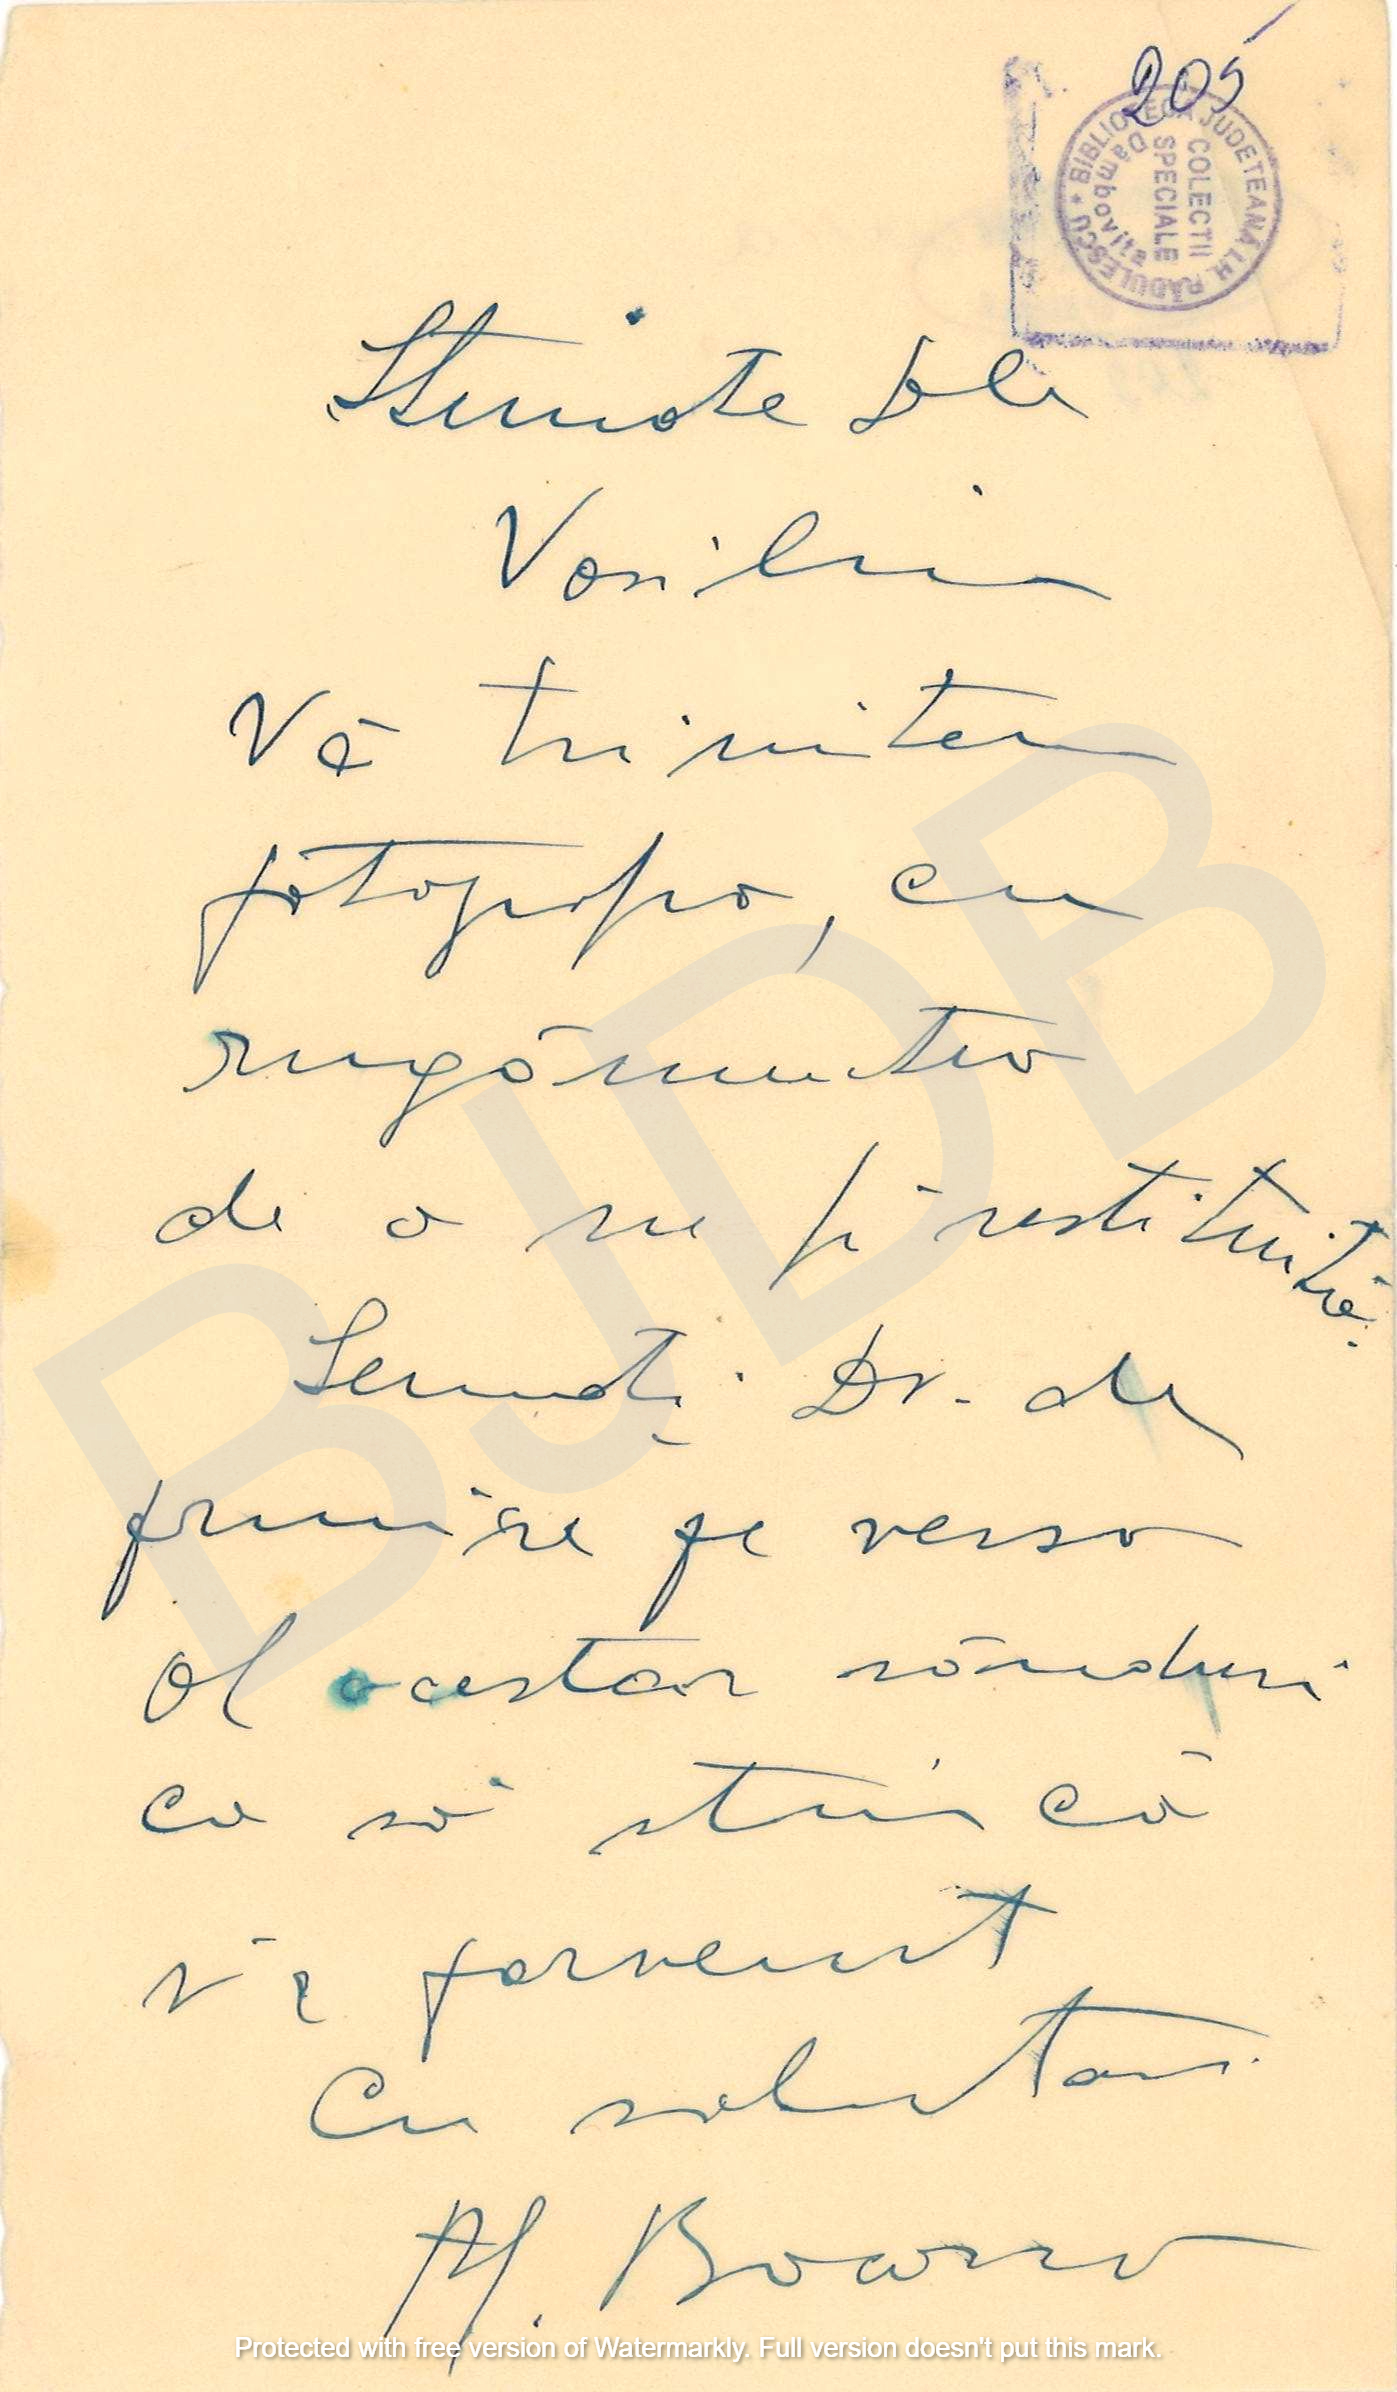 205
BIBLIOTECA JUDETEANĂ I.H. RĂDULESCU *
COLECTII
SPECIALE
Dâmbovita
Stimate Dle
Vasiliu
Vă trimitem
fotografia, cu
rugămintea
de a ne fi restituită.
Semnați Dv. de
primire pe verso
al acestor rânduri
ca să știu că
v'a parvenit
Cu salutări
Al.
BJDB
Protected with free version of Watermarkly. Full version doesn't put this mark.